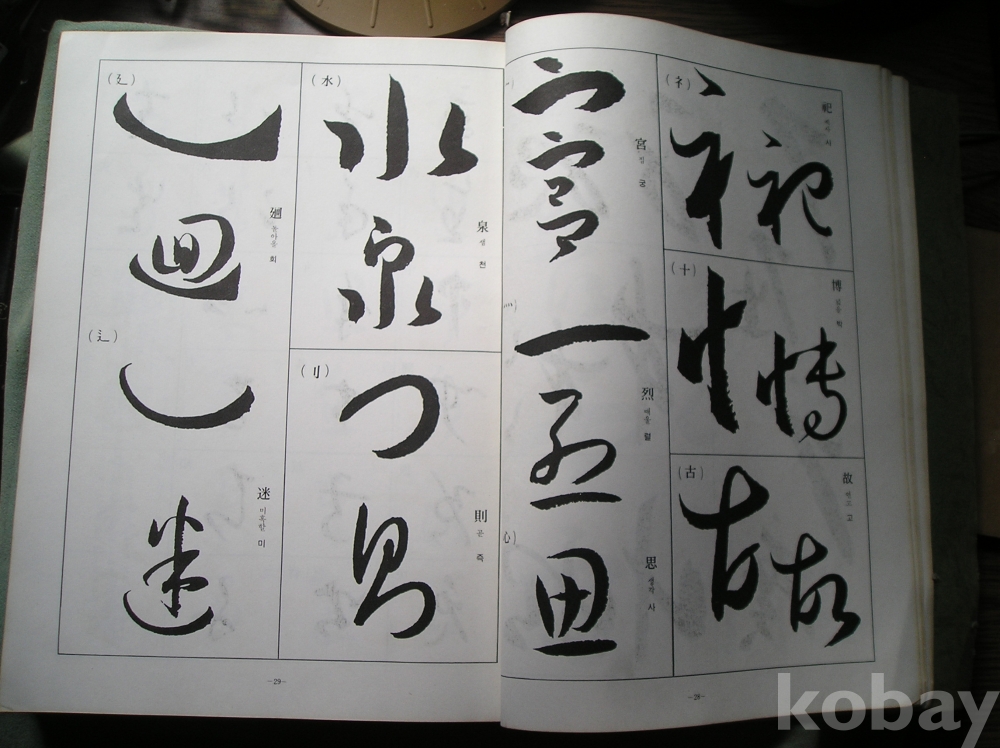 (礻)
祀
사
(十)
博
넓을 박
(古)
故
연고 고
宮
집 궁
烈
매울 렬
(心)
思
생각 사
-28-
(水)
水
泉
샘 천
泉
(刂)
則
곧 즉
則
(廴)
廻
돌아올 회
廻
(辶)
迷
미혹할 미
迷
-29-
kobay